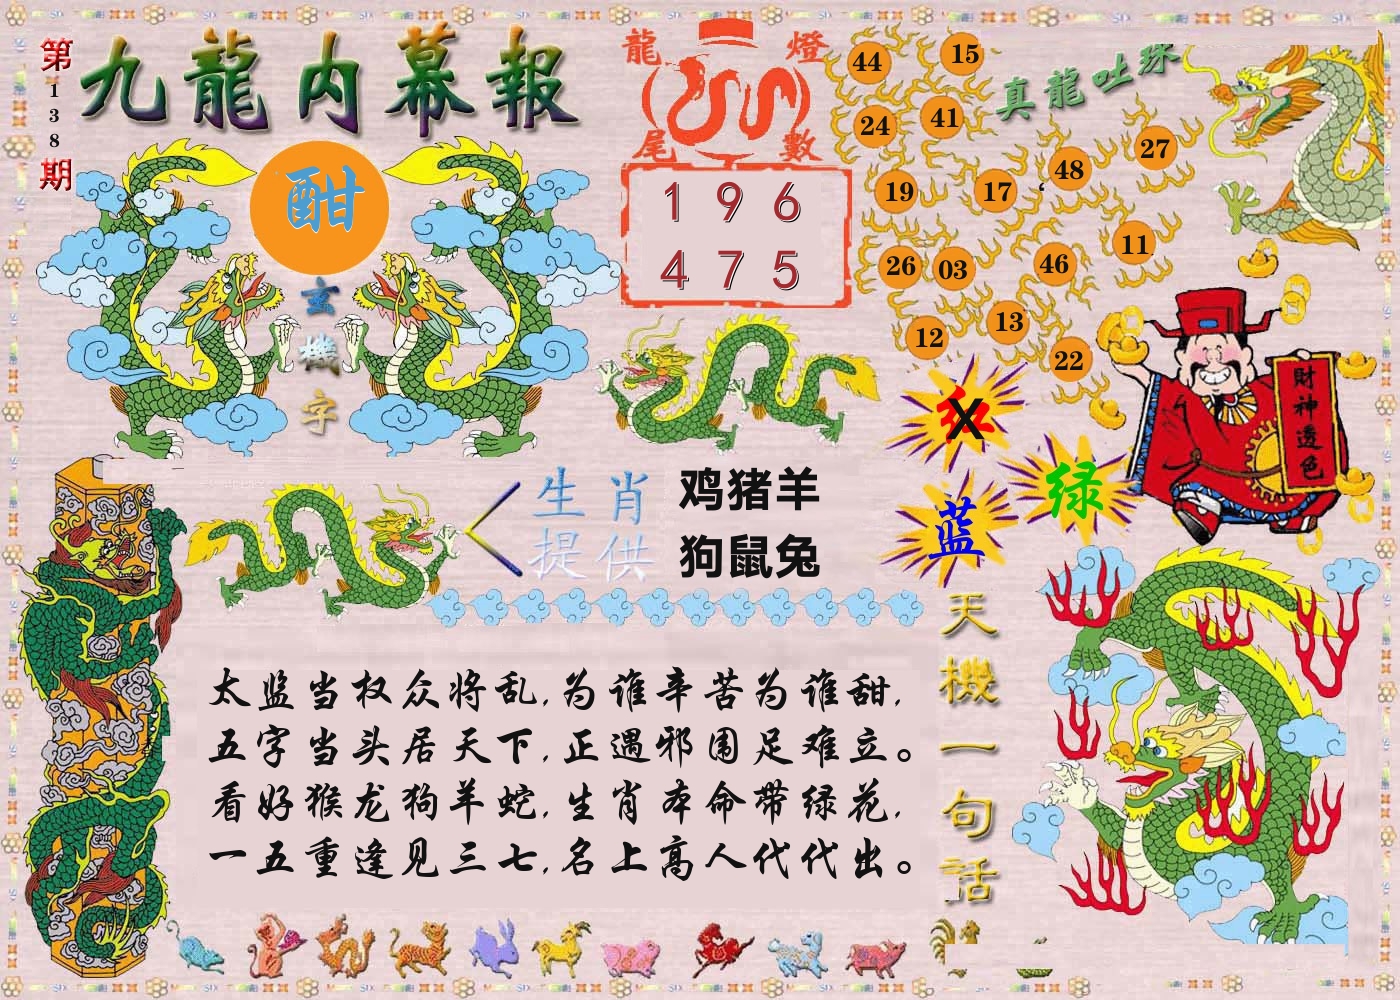 第138期
九龍内幕報
酣
玄機字
龍燈尾數
1 9 6
4 7 5
真龍吐珠
44
15
24
41
48
27
19
17
26
03
46
11
12
13
22
財神透色
红
X
绿
蓝
生肖
提供
鸡猪羊
狗鼠兔
天機一句話
太监当权众将乱,为谁辛苦为谁甜,
五字当头居天下,正遇邪围足难立。
看好猴龙狗羊蛇,生肖本命带绿花,
一五重逢见三七,名上高人代代出。